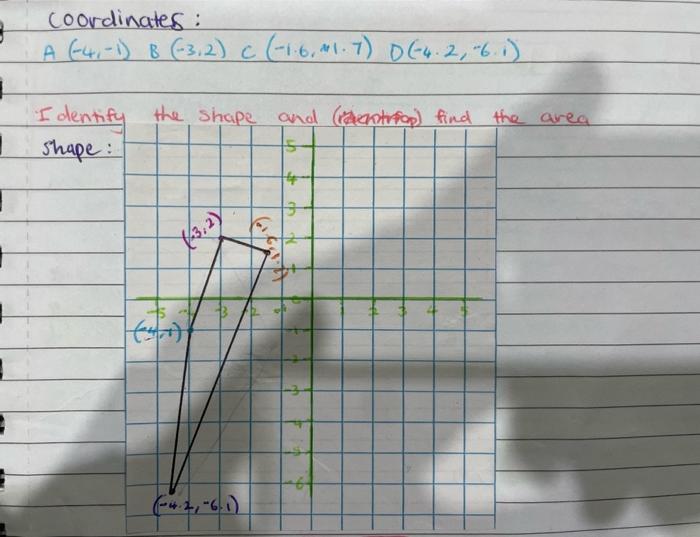 Coordinates:
A (-4,-1) B (-3,2) C (-1.6, 1.7) D(-4.2, -6.1)
Identify the shape and find the area
shape:
5
4
3
(-3,2)
2
(-1.6,1.7)
1
-5 -4 -3 -2 -1 0 1 2 3 4 5
(-4,-1)
-1
-2
-3
-4
-5
-6
(-4.2, -6.1)